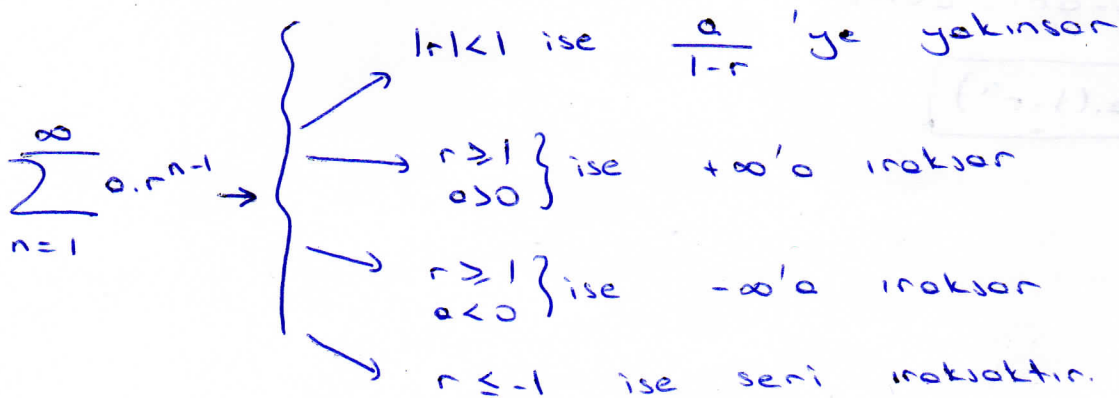 |r|<1 ise a/(1-r) 'ye yakınsar
∑_{n=1}^{∞} a.r^{n-1} →
r≥1 a>0 } ise +∞'a ıraksar
r≥1 a<0 } ise -∞'a ıraksar
r≤-1 ise seri ıraksaktır.